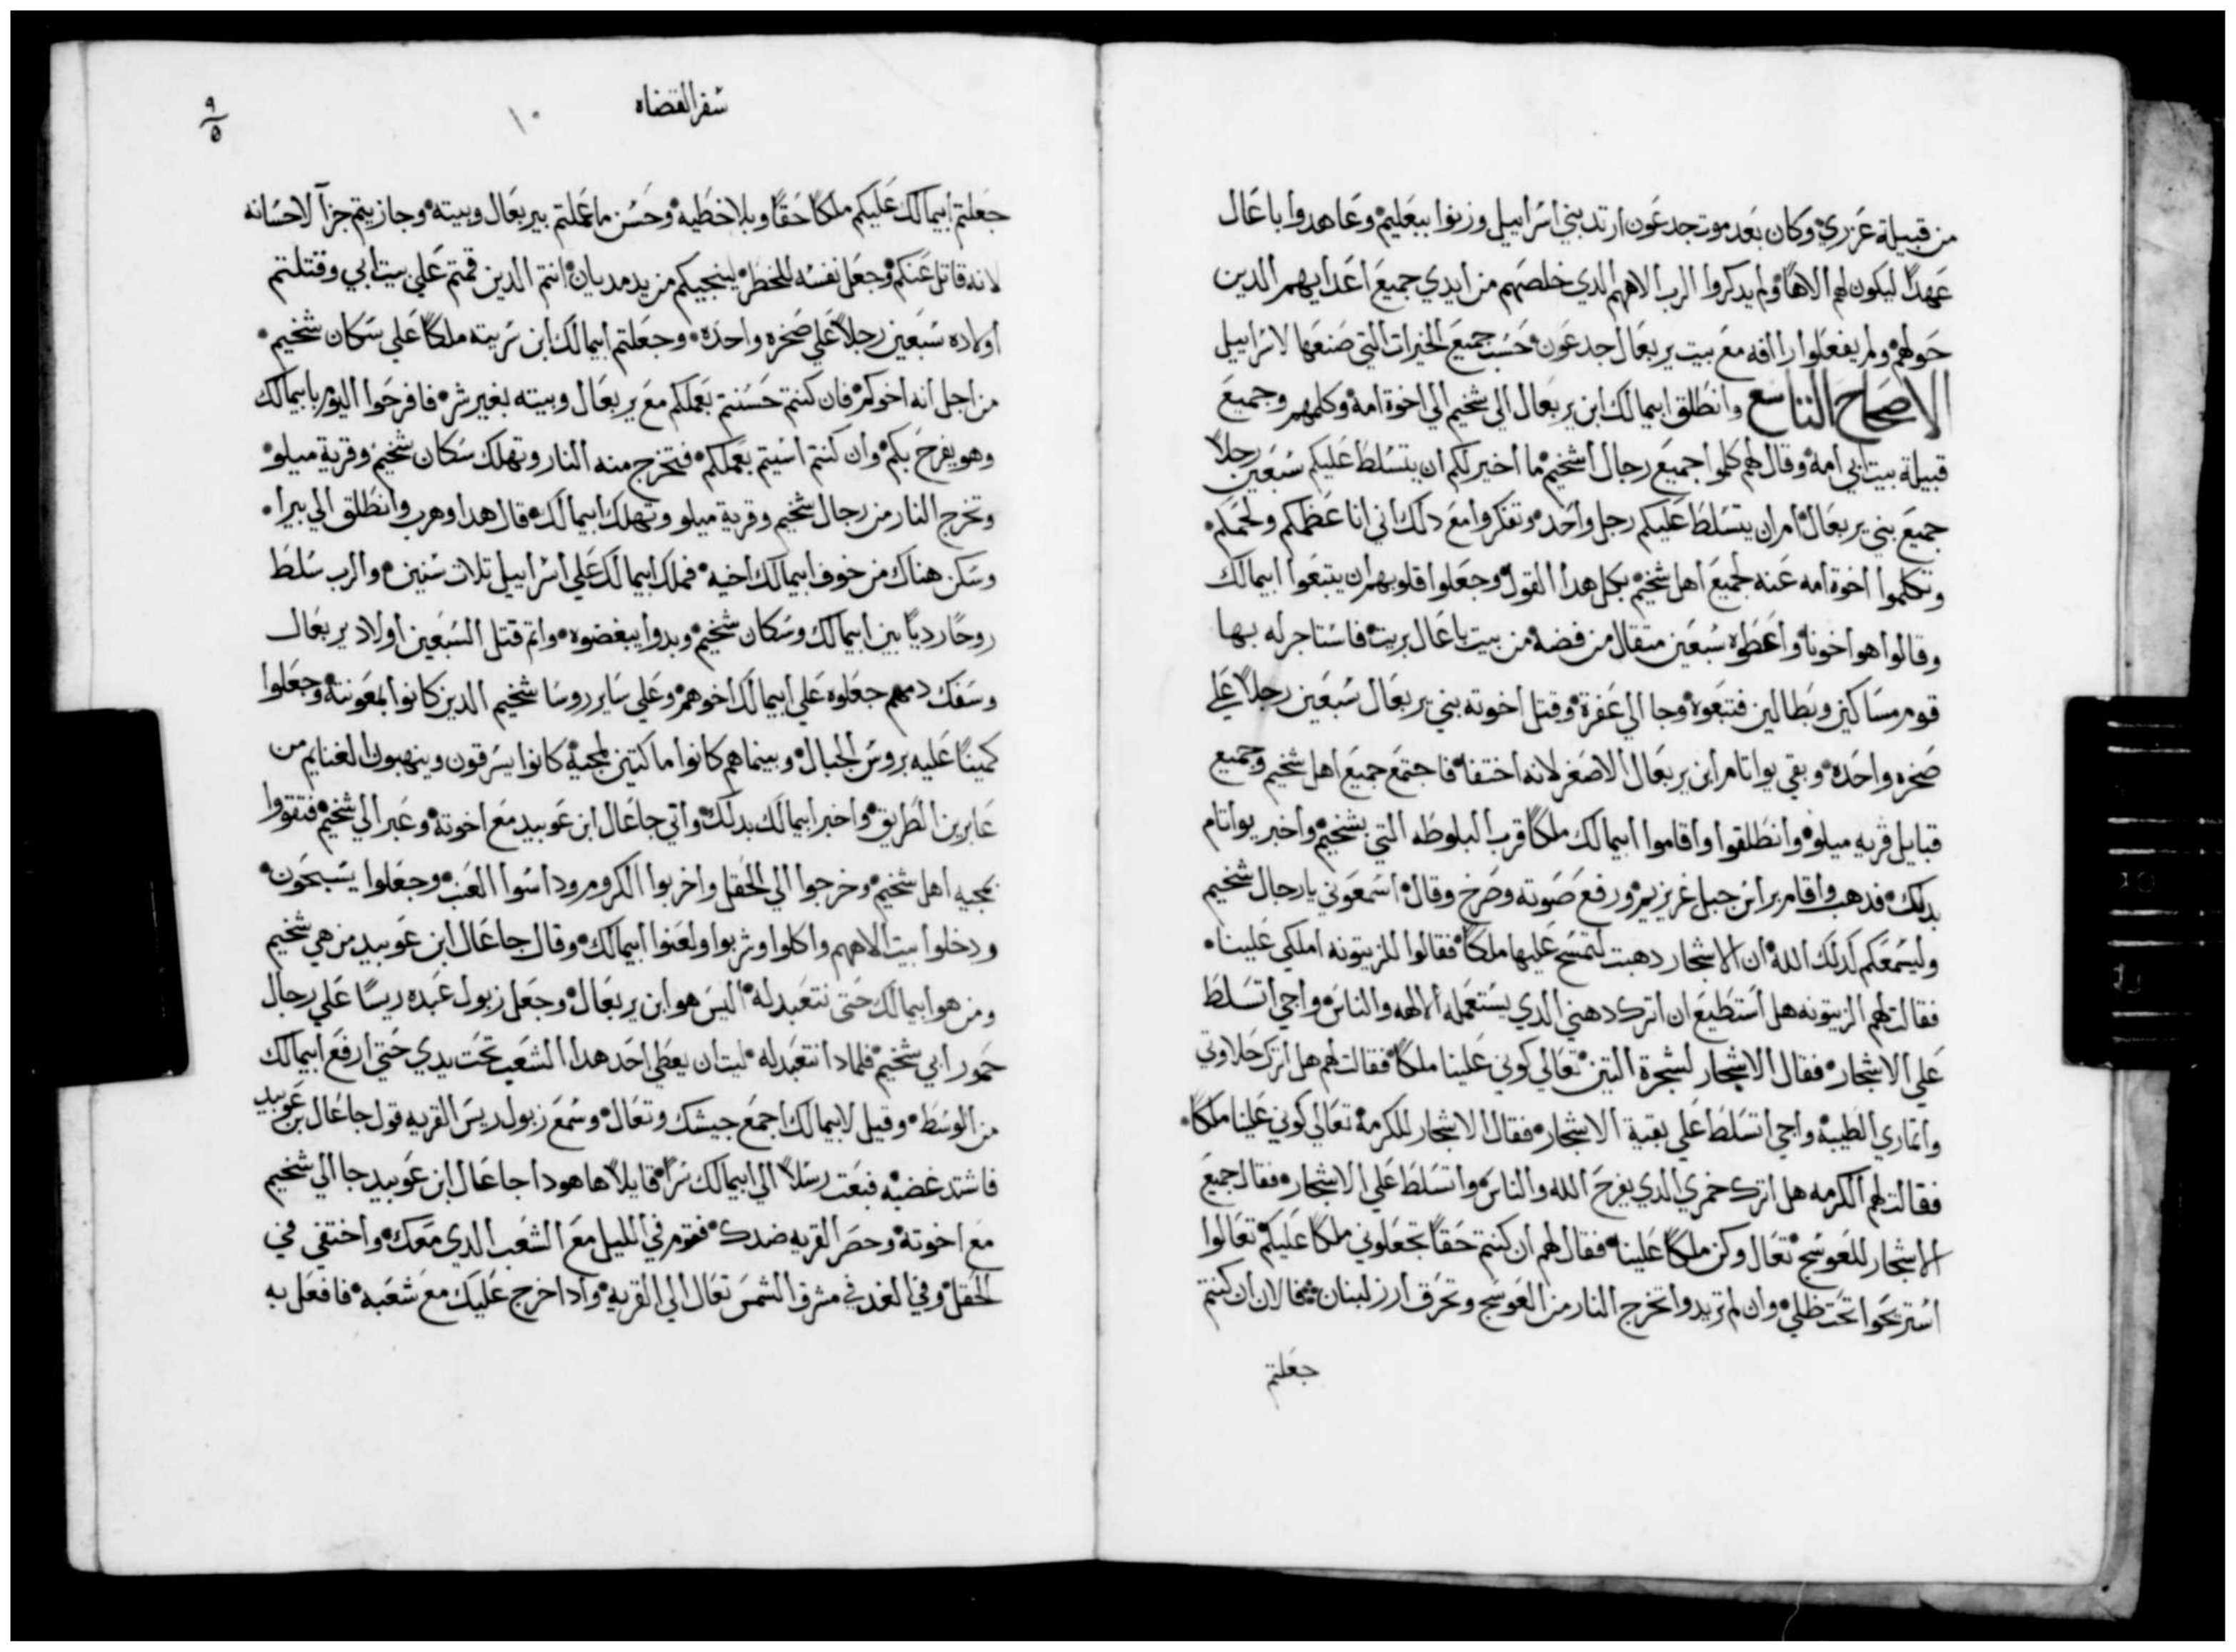 من قبيلة عزري وكان بعد موت جدعون ارتد بني اسراييل وزنوا ببعليم وعاهدوا باعال
عهدًا ليكون لهم الاهًا ولم يدكروا الرب الاههم الدي خلصهم من ايدي جميع اعدايهم الدين
حولهم ولم يفعلوا راافه مع بيت يربعال جدعون حسب جميع الخيرات التي صنعها لاسراييل
الاصحاح التاسع وانطلق ابيمالك ابن يربعال الي شخيم الي اخوة امه وكلمهم وجميع
قبيلة بيت ابي امه وقال لهم كلموا جميع رجال اشخيم ما اخير لكم ان يتسلط عليكم سبعين رجلاً
جميع بني يربعال ام ان يتسلط عليكم رجل واحد وتفكروا مع دلك اني انا عظمكم ولحمكم
وتكلموا اخوة امه عنه لجميع اهل شخيم بكل هدا القول وجعلوا قلوبهم ان يتبعوا ابيمالك
وقالوا هو اخونا واعطوه سبعين متقال من فضه من بيت باعال بريت فاستاجر له بها
قوم مساكين وبطالين فتبعوه وجا الي عفرة وقتل اخوته بني يربعال سبعين رجلاً علي
صخره واحده وبقي يواتام ابن يربعال الاصغر لانه اختفا فاجتمع جميع اهل شخيم وجميع
قبايل قريه ميلو وانطلقوا واقاموا ابيمالك ملكًا قرب البلوطه التي بشخيم واخبر يواتام
بدلك فدهب واقام براس جبل غريزيم ورفع صوته وصرخ وقال اسمعوني يا رجال شخيم
وليسمعكم كدلك الله ان الاشجار دهبت لتمسح عليها ملكًا فقالوا للزيتونه املكي علينا
فقالت لهم الزيتونه هل استطيع ان اترك دهني الدي يستعمله الالهه والناس واجي اتسلط
علي الاشجار فقال الاشجار لشجرة التين تعالي كوني علينا ملكًا فقالت لهم هل اترك حلاوتي
واتماري الطيبه واجي اتسلط علي بقية الاشجار فقال الاشجار للكرمة تعالي كوني علينا ملكًا
فقالت لهم الكرمه هل اترك خمري الدي يفرح الله والناس واتسلط علي الاشجار فقال جميع
الاشجار للعوسج تعال وكن ملكًا علينا فقال لهم ان كنتم حقًا تجعلوني ملكًا عليكم تعالوا
استريحوا تحت ظلي وان لم تريدوا تخرج النار من العوسج وتحرق ارز لبنان فالان ان كنتم
جعلتم
سفر القضاه
١٠
٩
٥
جعلتم ابيمالك عليكم ملكًا حقًا وبلا خطيه وحسن ما عملتم بيربعال وبيته وجازيتم جزآ لاحسانه
لانه قاتل عنكم وجعل نفسه للخطر لينجيكم من يد مديان انتم الدين قمتم علي بيت ابي وقتلتم
اولاده سبعين رجلاً علي صخره واحده وجعلتم ابيمالك ابن سريته ملكًا علي سكان شخيم
من اجل انه اخوكم فان كنتم حسنتم بعملكم مع يربعال وبيته بغير شر فافرحوا اليوم بابيمالك
وهو يفرح بكم وان كنتم اسيتم بعملكم فتخرج منه النار وتهلك سكان شخيم وقرية ميلو
وتخرج النار من رجال شخيم وقرية ميلو وتهلك ابيمالك قال هدا وهرب وانطلق الي بيرا
وسكن هناك من خوف ابيمالك اخيه فملك ابيمالك علي اسراييل تلات سنين والرب سلط
روحًا رديًا بين ابيمالك وسكان شخيم وبدوا يبغضوه واتم قتل السبعين اولاد يربعال
وسفك دمهم جعلوه علي ابيمالك اخوهم وعلي ساير روسا شخيم الدين كانوا بمعونته وجعلوا
كمينًا عليه بروس الجبال وبينما هم كانوا ماكتين لمجيه كانوا يسرقون وينهبون الغنايم من
عابرين الطريق واخبر ابيمالك بدلك واتي جاعال ابن عوبيد مع اخوته وعبر الي شخيم فتقووا
بمجيه اهل شخيم وخرجوا الي الحقل واخربوا الكروم وداسوا العنب وجعلوا يسبحون
ودخلوا بيت الاههم واكلوا وشربوا ولعنوا ابيمالك وقال جاعال ابن عوبيد من هي شخيم
ومن هو ابيمالك حتى نتعبد له اليس هو ابن يربعال وجعل زبول عبده ريسًا علي رجال
حمور ابي شخيم فلمادا نتعبد له ليت ان يعطي احد هدا الشعب تحت يدي حتي ارفع ابيمالك
من الوسط وقيل لابيمالك اجمع جيشك وتعال وسمع زبول ريس القريه قول جاعال بن عوبيد
فاشتد غضبه فبعت رسلاً الي ابيمالك سرًا قايلاً ها هودا جاعال ابن عوبيد جا الي شخيم
مع اخوته وحصر القريه ضدك فقوم في الليل مع الشعب الدي معك واختفي في
الحقل وفي الغد في مشرق الشمس تعال الي القريه وادا خرج عليك مع شعبه فافعل به